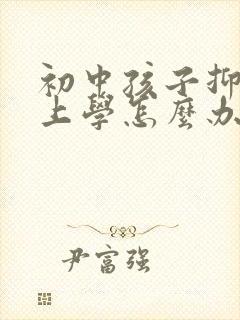 初中孩子抑
上學怎麼办
尹富强